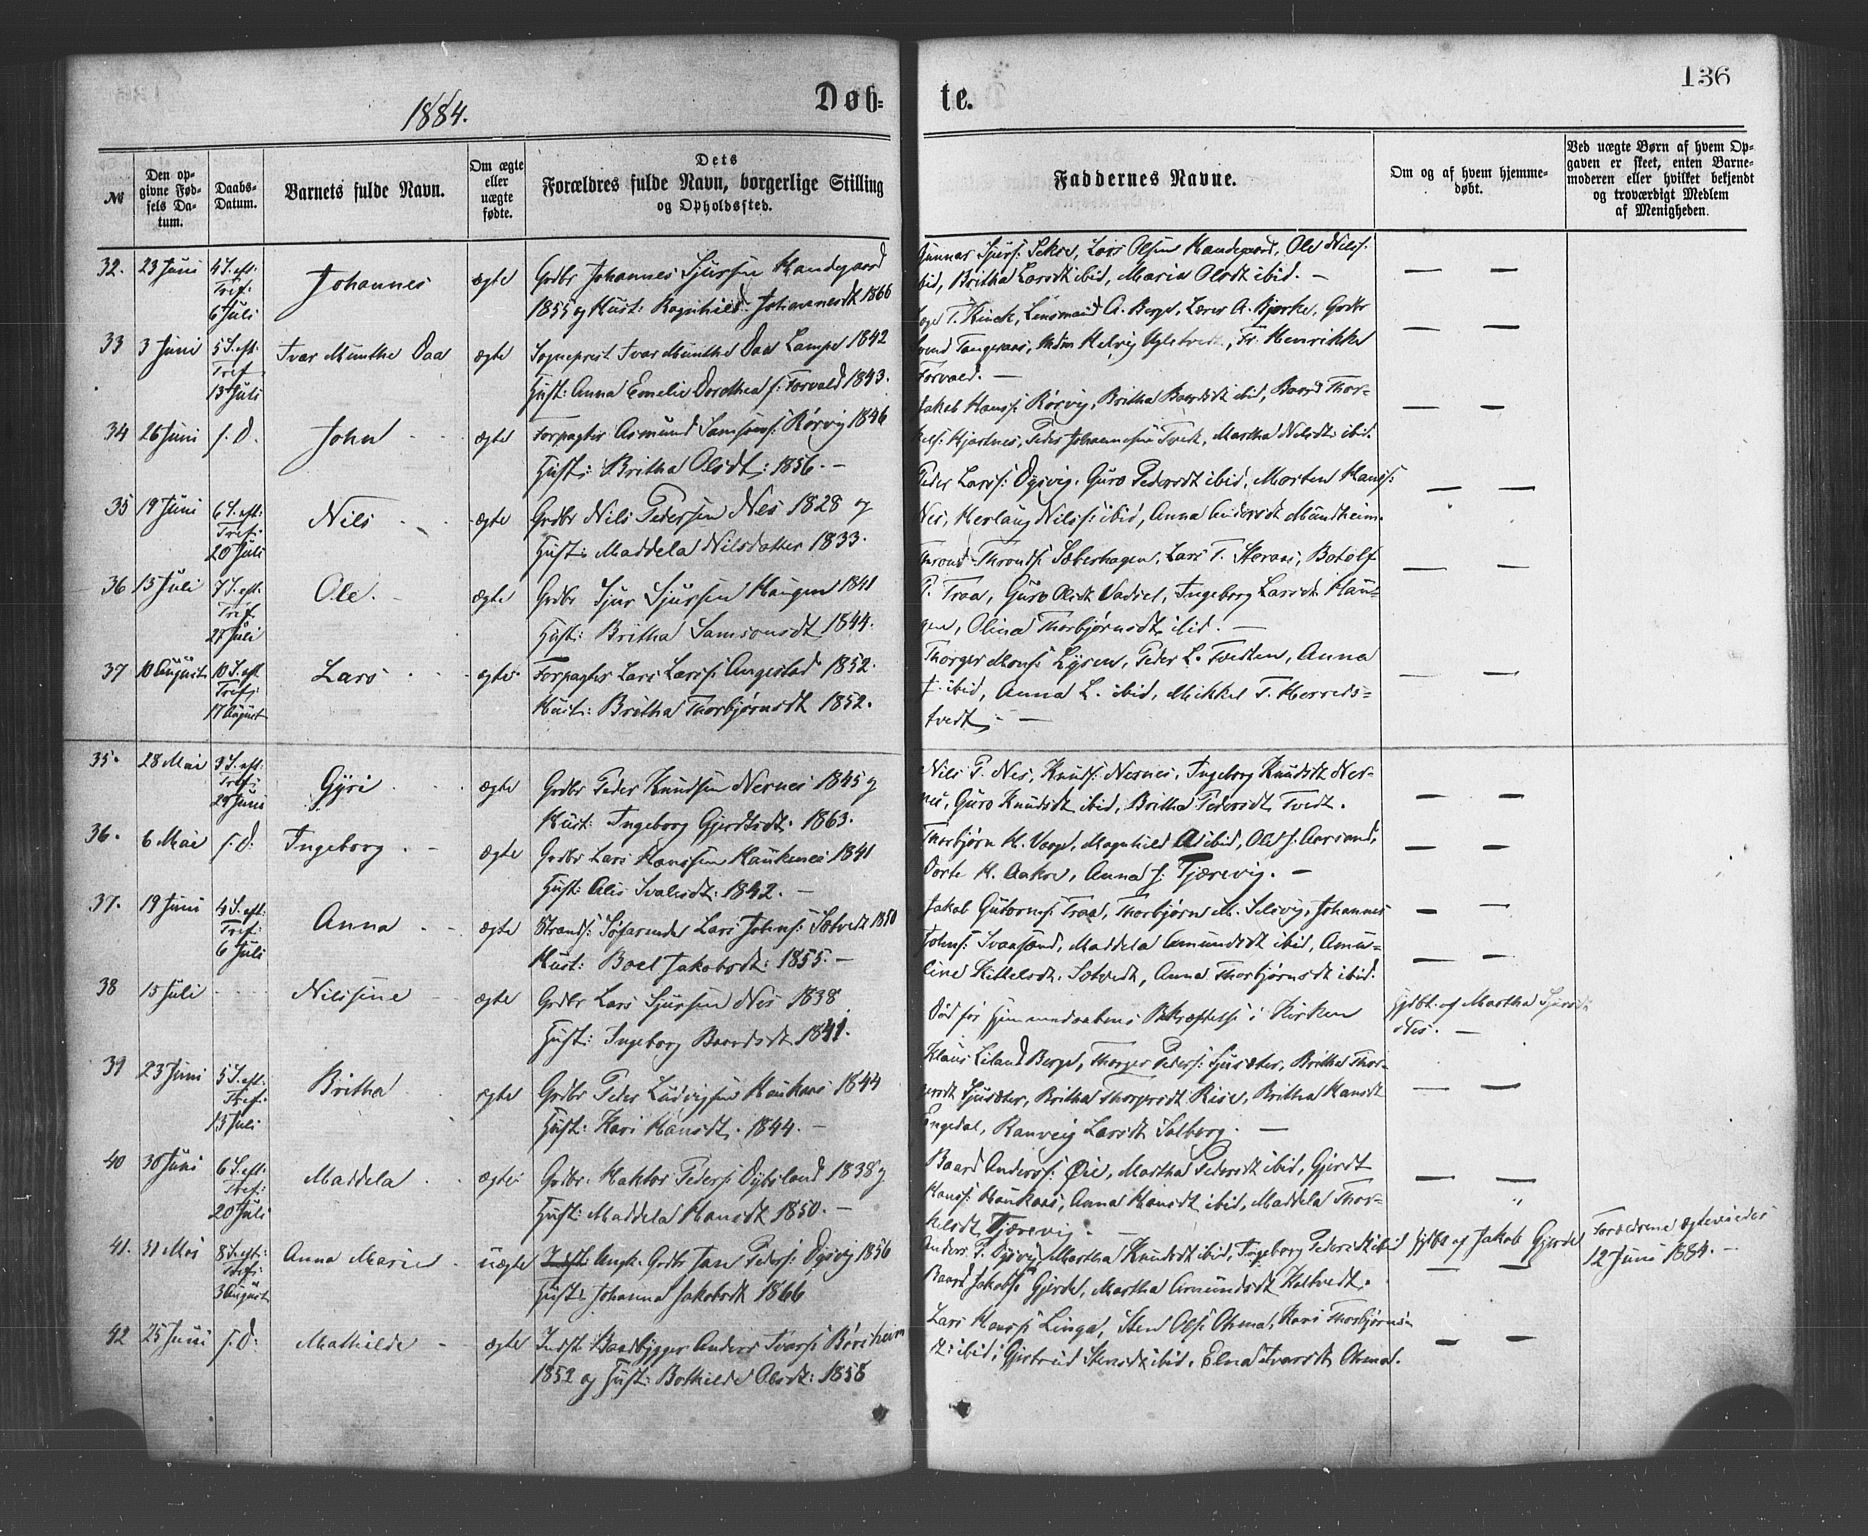 136
1884.
Døb=
te.
№
Den opgivne Fødsels Datum.
Daabs-Datum.
Barnets fulde Navn.
Om ægte eller uægte fødte.
Dets
Forældres fulde Navn, borgerlige Stilling
og Opholdssted.
Faddernes Navne.
Om og af hvem hjemmedøbt.
Ved uægte Børn af hvem Opgaven er skeet, enten Barnemoderen eller hvilket bekjendt og troværdigt Medlem af Menigheden.
32. 23 Juni 4 S. eft: Tref: 6 Juli Johannes ægte Grdbr Johannes Sjursen Handegaard
1855 og Hust: Ragnhild Johannesdt 1866
Gunnar Sjurs: Lars Olsen Handegaard, Ole Nils:
ibid, Britha Larsdt ibid, Maria Olsdt ibid. —
33 3 Juni 5 S. eft: Tref 13 Juli Ivar Munthe Daa ægte Sogneprest Ivar Munthe Daa Lampe 1842
Hust: Anna Emelie Dorothea f: Forvald 1843.
T. Kinck, Lensmand A. Berge, Lærer A. Bjørke, Grdbr
Tangeraas, Helvig Fr. Henrikke
Forvald. —
34 26 Juni s. D. John ægte Forpagter Asmund Samsons: Rørvig 1846
Hust: Britha Olsdt: 1856. —
Jakob Hanss: Rørvig, Britha Baardsdt ibid, Baard Thor-
kels: Hjartnes, Peder Johannesen Tvedt, Martha Nilsdt ibid.
35 19 Juni 6 S. eft: Tref: 20 Juli Nils ægte Grdbr Nils Pedersen Nes 1828 og
Hust: Maddela Nilsdatter 1833.
Peder Larss: Øysvig, Guro Pedersdt ibid, Morten Hanss:
Nes, Herlaug Nilss: ibid, Anna Andersdt Mundheim.
36 15 Juli 7 S. eft: Tref 27 Juli Ole. ægte Grdbr Sjur Sjursen Haugen 1841
Hust: Britha Samsonsdt 1844.
Thrond Thronds: Sæberhagen, Lars T. Steraas, Botolf
P. Traa, Guro Olsdt Vadset, Ingeborg Larsdt Hau-
gen, Olina Thorbjørnsdt ibid. —
37 10 August 10 S. eft Tref: 17 August Lars ægte Forpagter Lars Larss: Augestad 1852.
Hust: Britha Thorbjørnsdt 1852.
Thorger Mons: Lysen, Peder L. Tvedten, Anna
ibid, Anna L. ibid, Mikkel T. Herreds-
tvedt; —
35. 28 Mai 3 S. eft: Tref: 29 Juni Gyri ægte Grdbr Peder Knudsen Nernes 1845 og
Hust: Ingeborg Gjerdtsdt. 1863.
Nils P. Nes, Knuds: Nernes, Ingeborg Knudsdt Ner-
nes, Guro Knudsdt ibid, Britha Pedersdt Tvedt.
36. 6 Mai s. D. Ingeborg ægte Grdbr Lars Hanssen Haukenes 1841
Hust: Alis Ivalsdt: 1842. —
Thorbjørn H. Vaage, Magnhild A ibid, Ole J. Aarsand,
Dorte H. Aakre, Anna J. Tjærevig. —
37. 19 Juni 4 S. eft: Tref: 6 Juli Anna ægte Strands: Søfarende Lars Johns: Sætvedt 1850
Hust: Boel Jakobsdt: 1855. —
Jakob Gutorms: Traa, Thorbjørn M. Selsvig, Johannes
Johns: Svaasand, Maddela Amundsdt ibid, Amu-
line Kittelsdt. Sætvedt, Anna Thorbjørnsdt ibid.
38 15 Juli Nilsine ægte Grdbr Lars Sjursen Nes 1838
Hust: Ingeborg Baardsdt 1841.
Død før Hjemmedaabens Bekræftelse i Kirken
hjdbt. af Martha Sjursdt
Nes. —
39 23 Juni 5 S. eft: Tref: 13 Juli Britha ægte Grdbr Peder Ludvigsen Haukaas 1844
Hust: Kari Hansdt. 1844. —
Klaus Leland Berge, Thorger Peders: Sjusæter, Britha Thor-
gersdt Sjusæter, Britha Thorgersdt Rise, Britha Hansdt
Engedal, Ranveig Larsdt Solberg. —
40 30 Juni 6 S. eft: Tref: 20 Juli Maddela ægte Grdbr. Haktor Peders: Dybsland 1838 og
Hust: Maddela Hansdt 1850. —
Baard Anderss: Øie, Martha Pedersdt ibid, Gjerdt
Hanss: Haukaas, Anna Hansdt ibid, Maddela Thor-
kelsdt Tjærevig. —
41. 31 Mai 8 S. eft: Tref: 3 August Anna Marie uægte Ungk. Grdbr Jan Peders: Øysvig 1856
Hust: Johanna Jakobsdt 1866
Anders P. Øysvig, Martha Knudsdt ibid, Ingeborg Pedersdt ibid
Baard Jakobs: Gjerde, Martha Amundsdt Kaltvedt.
hjdbt af Jakob Gjerde
Forældrene ægteviedes
12 Juni 1884. —
42 25 Juni s. D. Mathilde ægte Indst: Baadbygger Anders Ivars: Børsheim
1852 og Hust: Bothilde Olsdt: 1858
Lars Hanss: Linga, Sten Ols: Omal, Kari Thorbjørns-
dt: ibid, Gjertrud Stensdt ibid, Elna Ivarsdt Omal.